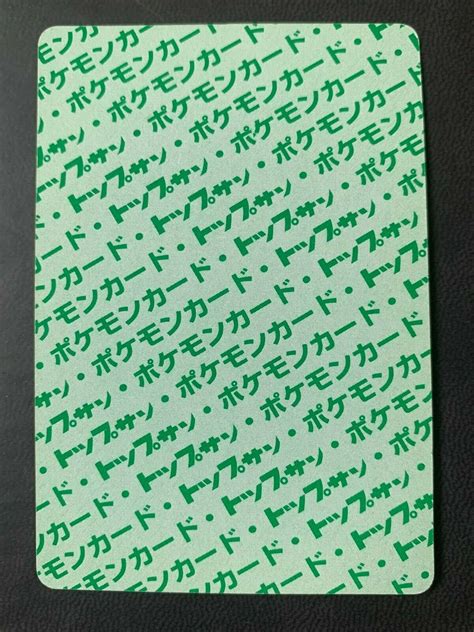 ポケモン
ポケモンカード
ポケモンカード・ポケモン
トップサン・ポケモンカード・
トップサン・ポケモンカード・
カード・トップサン・ポケモンカード
ポケモンカード・トップサン・ポケモン
ポケモンカード・トップサン・ポケ
・ポケモンカード・トップサン・
トップサン・ポケモンカード・トップサン
トップサン・ポケモンカード・
カード・トップサン・ポケモンカード
モンカード・トップサン・ポケモン
ポケモンカード・トップサン
ポケモンカード・
ポケモンカード